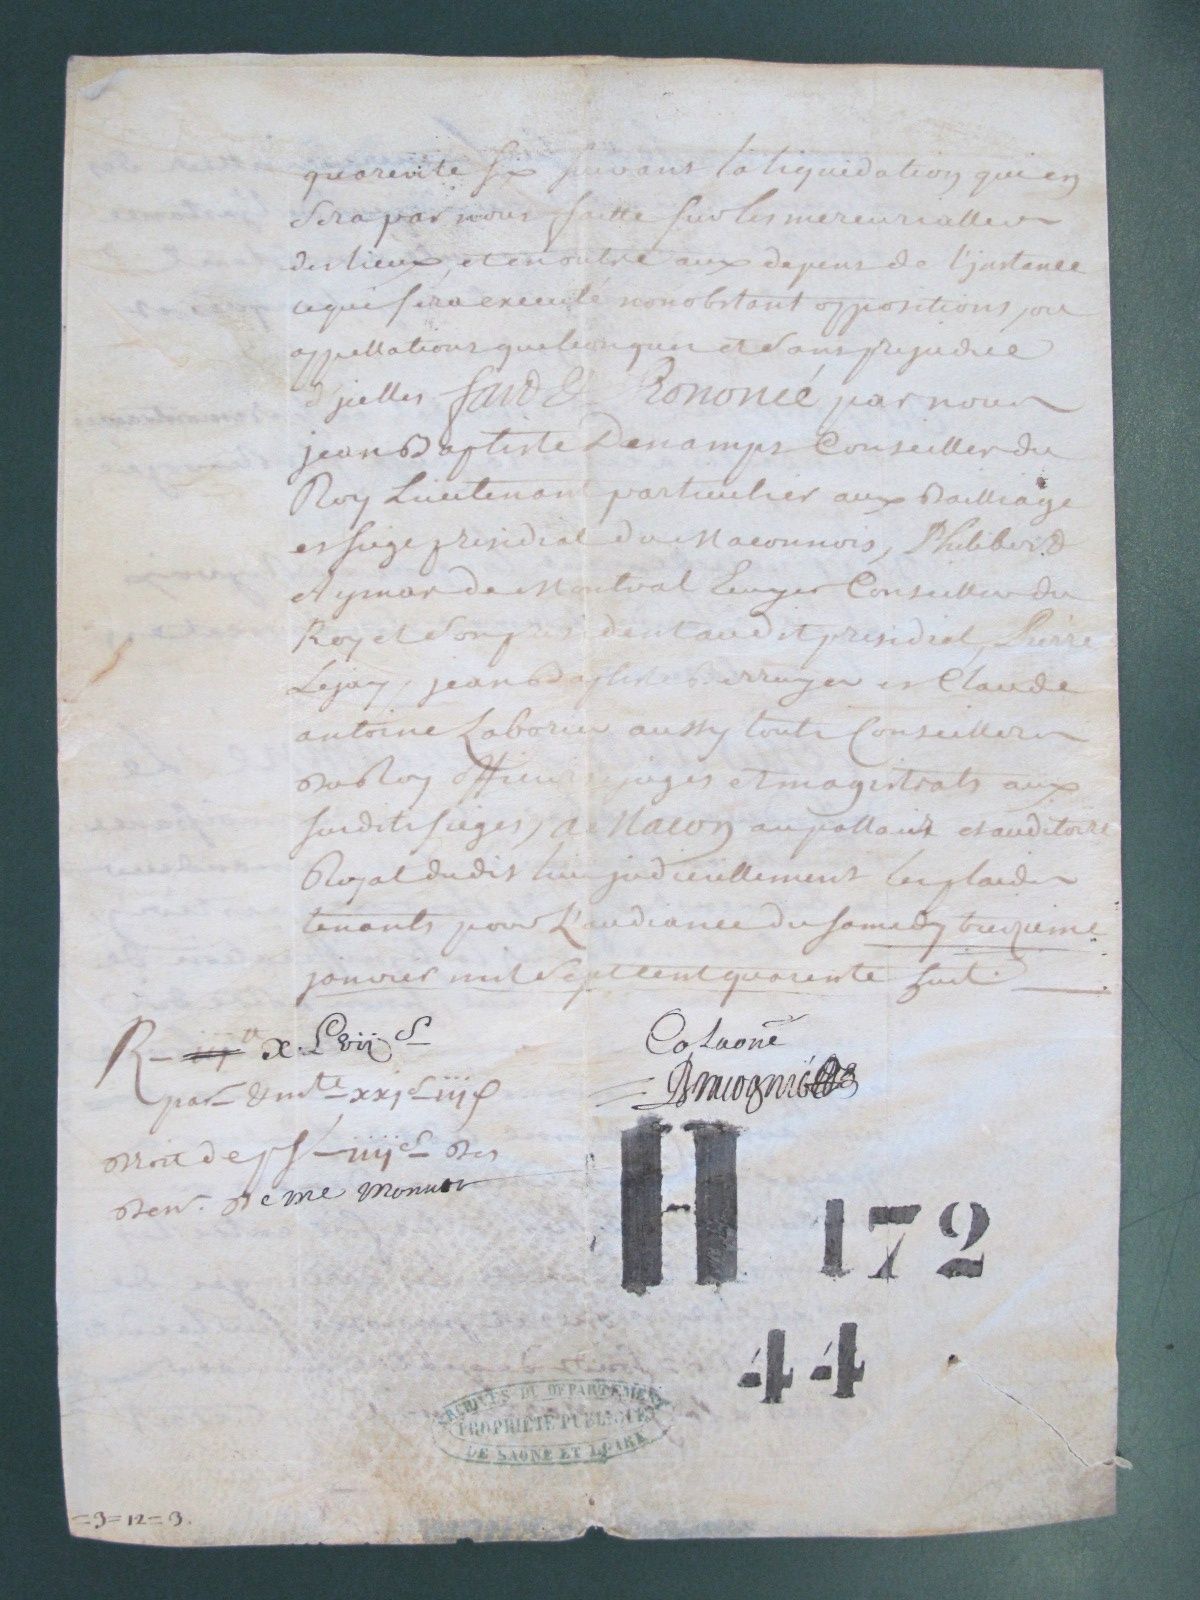 quarente six suivant la liquidation qui en
sera par nous faitte sur les mercurialles
des lieux, et en outre aux depens de l'jnstance
ce qui sera executé nonobstant oppositions, ou
appellations quelconques et sans prejudice
d'jcelles fait & Prononcé par nous
jean Baptiste Denamps Conseiller du
Roy Lieutenant particulier aux Bailliage
et siege presidial du Maconnois, Philibert
Aymar de Montval Conseiller du
Roy et son president audit presidial, Pierre
Lejay, jean Baptiste Berruyer et Claude
antoine Laborier aussy touts Conseillers
du Roy officiers juges et magistrats aux
susdits sieges, a Macon au pallais et auditoire
Royal dudit lieu judiciellement les plaids
tenants pour L'audiance du samedy treizieme
janvier mil sept cent quarente huit.
R
Colaoné
droit de
Rec. Me Monnier
H 172
44
ARCHIVES DU DEPARTEMENT
PROPRIETE PUBLIQUE
DE SAONE ET LOIRE
=3=12=3.